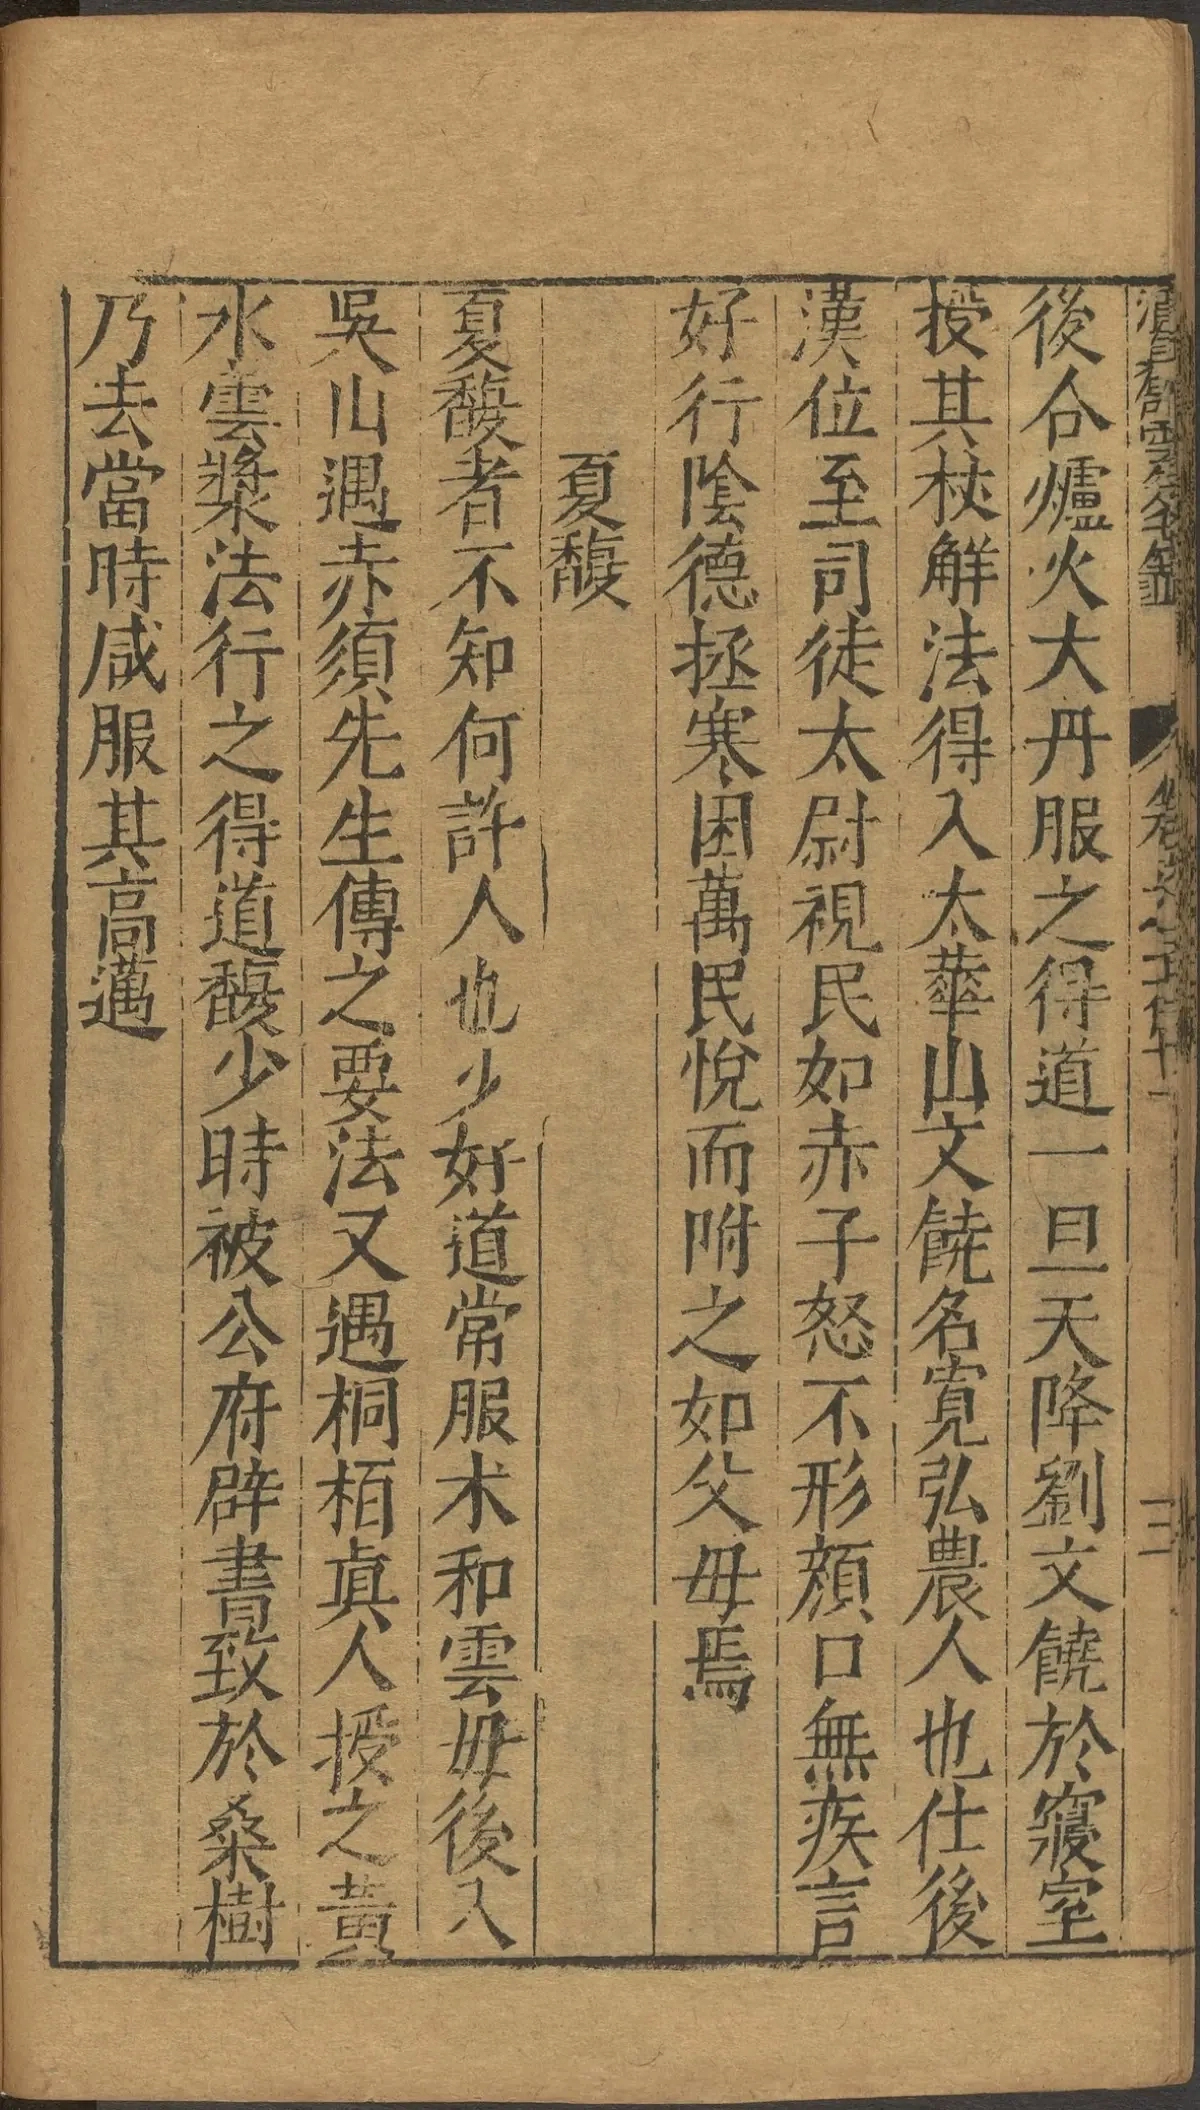 後合爐火大丹服之得道一旦天降劉文饒於寢室
授其杖解法得入太華山文饒名寬弘農人也仕後
漢位至司徒太尉視民如赤子怒不形顔口無疾言
好行陰德拯寒困萬民悅而附之如父母焉
夏馥
夏馥者不知何許人也少好道常服术和雲母後入
吳山遇赤須先生傳之要法又遇桐栢眞人授之黃
水雲漿法行之得道馥少時被公府辟書致於桑樹
乃去當時咸服其高邁